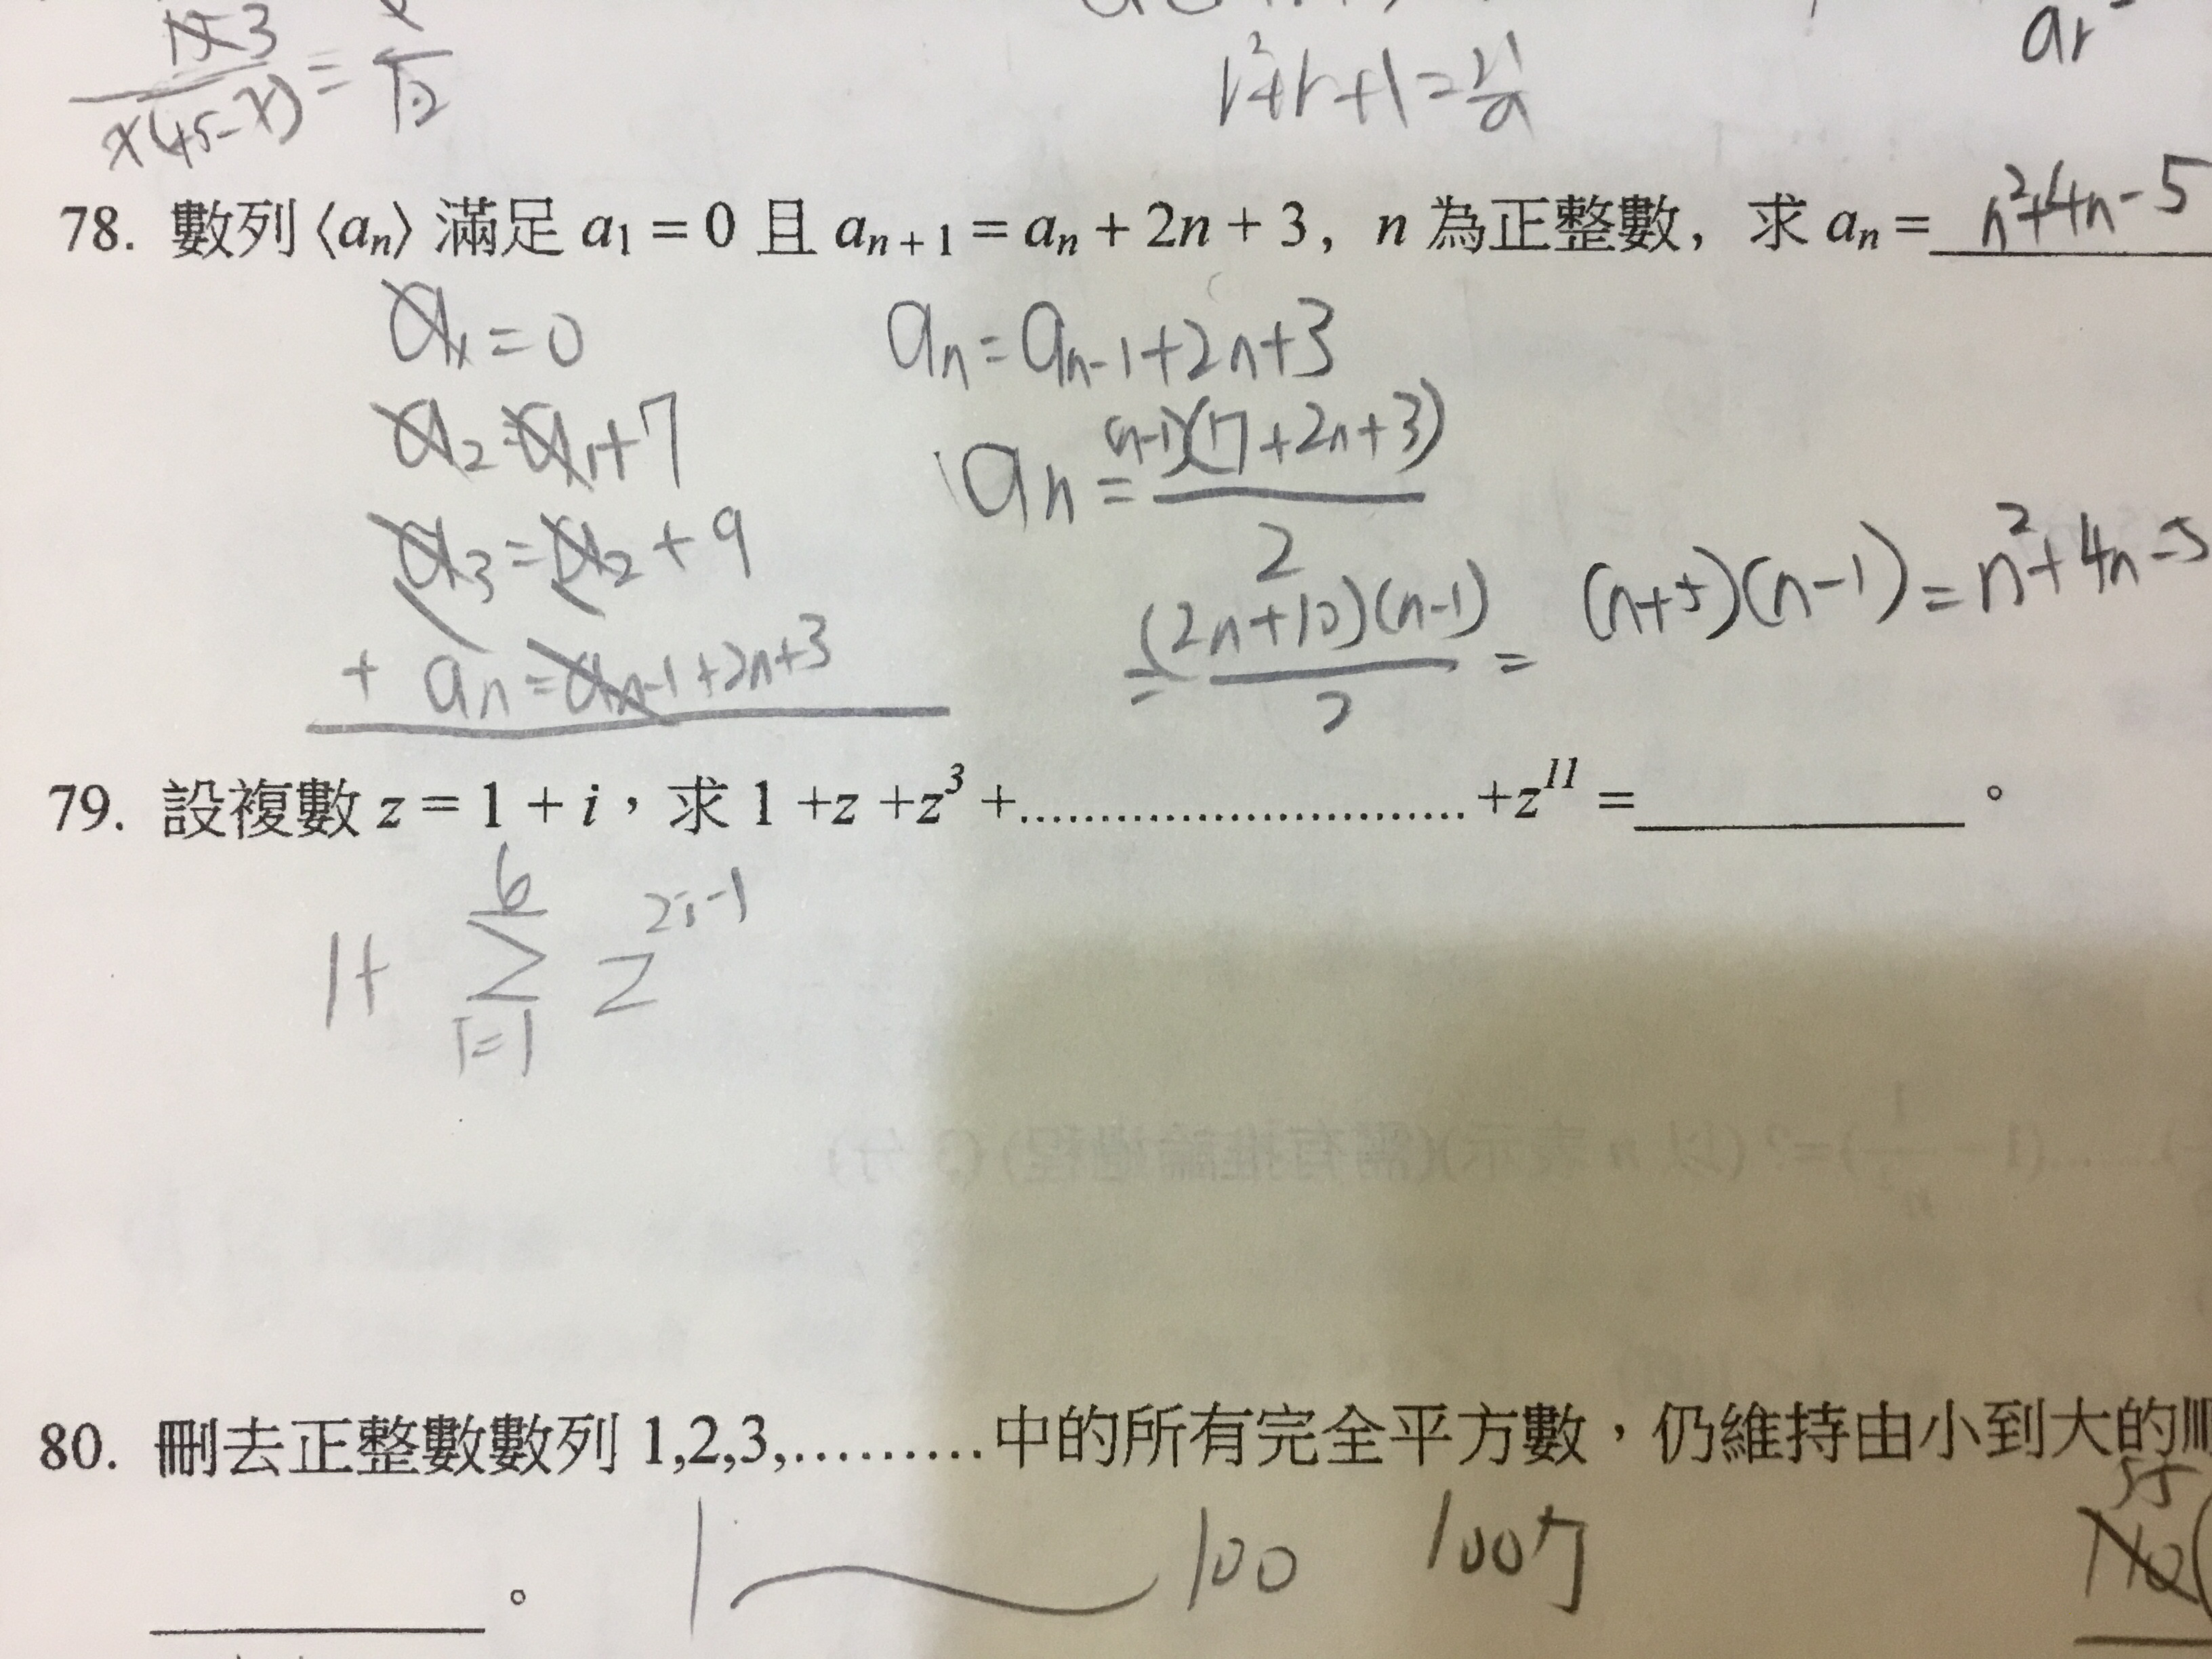 15-3
x(45-x) = 12
r²+r+1=21/a
ar
78. 數列〈aₙ〉滿足 a₁ = 0 且 aₙ₊₁ = aₙ + 2n + 3，n 為正整數，求 aₙ = n²+4n-5
a₁=0
a₂=a₁+7
a₃=a₂+9
+ aₙ=aₙ₋₁+2n+3
aₙ=aₙ₋₁+2n+3
aₙ=(n-1)(7+2n+3)/2
=(2n+10)(n-1)/2=(n+5)(n-1)=n²+4n-5
79. 設複數 z = 1 + i，求 1 +z +z³ +............................ +z¹¹ =__________。
1+ 6 Σ i=1 z²ⁱ⁻¹
80. 刪去正整數數列 1,2,3,.........中的所有完全平方數，仍維持由小到大的
1 100
__________。